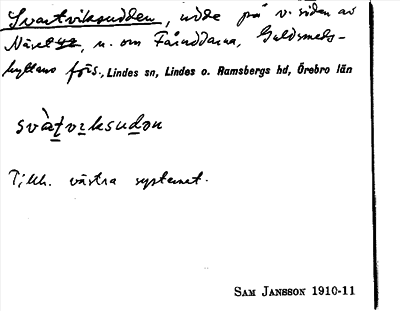 Svartviksudden, udde på v. sidan av
Näset, n. om Fåruddarna, Guldsmeds-
hyttans förs., Lindes sn, Lindes o. Ramsbergs hd, Örebro län
svàtvıksudən
Tillh. västra systemet.
SAM JANSSON 1910-11